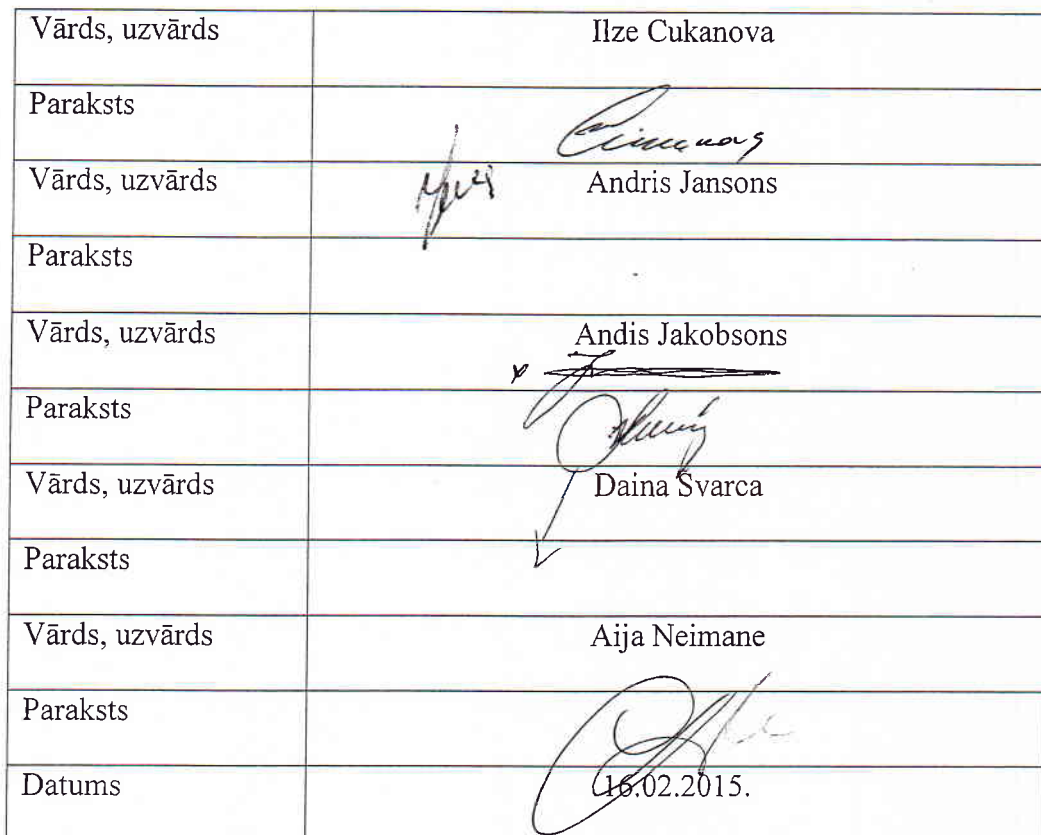 Vārds, uzvārds Ilze Cukanova
Paraksts
Vārds, uzvārds Andris Jansons
Paraksts
Vārds, uzvārds Andis Jakobsons
Paraksts
Vārds, uzvārds Daina Švarca
Paraksts
Vārds, uzvārds Aija Neimane
Paraksts
Datums 16.02.2015.